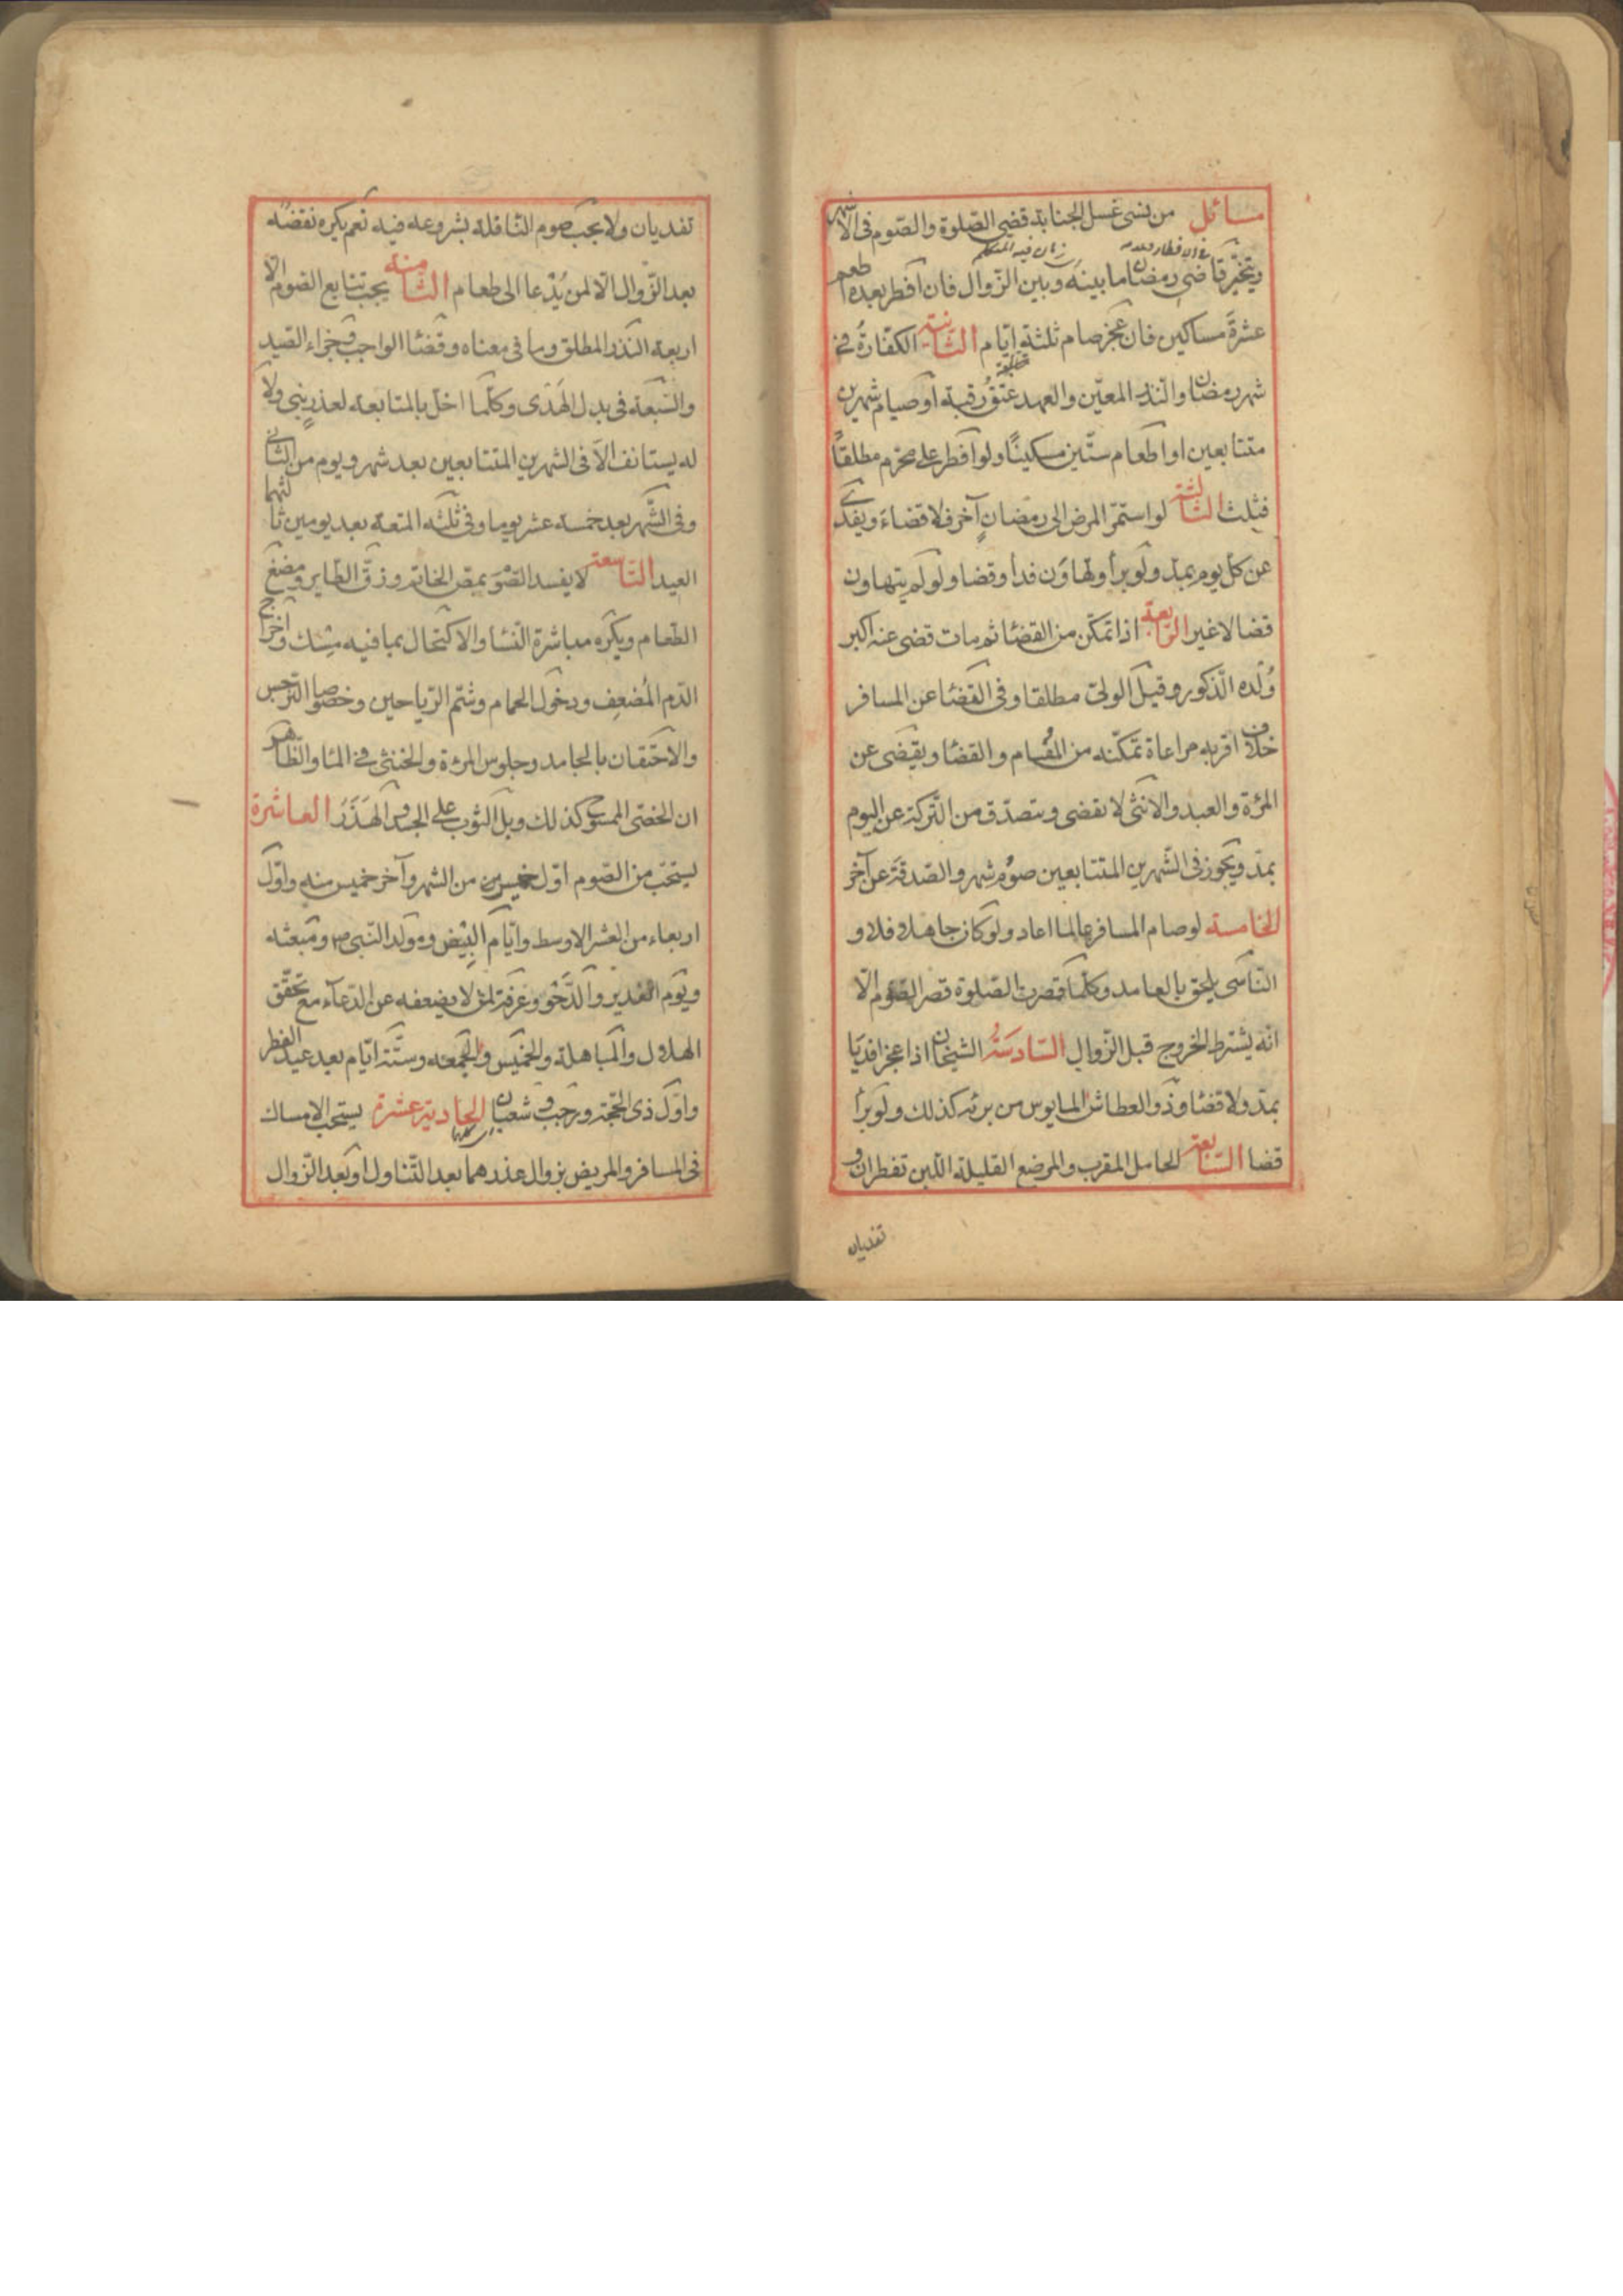 مسائل من نسى غسل الجنابة قضى الصّلوة والصّوم فى الاشهر
ويتخيّر قاضى رمضان ما بينه وبين الزّوال فان افطر بعده اطعم
عشرة مساكين فان عجز صام ثلثة ايّام الثّانية الكفّارة فى
شهر رمضان والنّذر المعيّن والعهد عتق رقبة او صيام شهرين
متتابعين او اطعام ستّين مسكينًا ولو افطر على محرّم مطلقاً
فثلث الثّالثة لو استمرّ المرض الى رمضانٍ آخر فلا قضاء ويفدى
عن كلّ يوم بمدّ ولو برأ وتهاون فدا وقضا ولو لم يتهاون
قضا لا غير الرّابعة اذا تمكّن من القضا ثم مات قضى عنه اكبر
وُلْده الذّكور وقيل الولىّ مطلقا وفى القضا عن المسافر
خلاف اقربه مراعاة تمكّنه من المُقام والقضا ويقضى عن
المرْءة والعبد والانثى لا تقضى ويتصدّق من التّركة عن اليوم
بمدّ ويجوز فى الشّهرين المتتابعين صوم شهر والصّدقة عن آخر
الخامسة لو صام المسافر عالما اعاد ولو كان جاهلا فلا و
النّاسى يلحق بالعامد وكلّما قصرت الصّلوة قصر الصّوم الّا
انّه يشترط الخروج قبل الزّوال السّادسةُ الشيخان اذا عجزا فديا
بمدّ ولا قضا وذو العطاش المايوس من برئه كذلك ولو برأ
قضا السّابعة الحامل المقرب والمرضع القليلة اللّبن تفطران و
تفديان
تفديان ولا يجب صوم النّافلة بشروعه فيه نعم يكره نقضه
بعد الزّوال الّا لمن يُدْعا الى طعام الثّامنة يجب تتابع الصّوم الّا
اربعة النّذر المطلق وما فى معناه وقضا الواجب وجزاء الصّيد
والسّبعة فى بدل الهَدْى وكلّما اخلّ بالمتابعة لعذرٍ بنى ولا
له يستانف الّا فى الشهرين المتتابعين بعد شهر ويوم من الثّانى
وفى الشّهر بعد خمسة عشر يوما وفى ثلثه المتعة بعد يومين ثالثهما
العيد التّاسعة لا يفسد الصّوم بمصّ الخاتم وزقّ الطّاير ومضغ
الطّعام ويكره مباشرة النّسا والاكتحال بما فيه مِسْك واخراج
الدّم المُضعِف ودخول الحمام وشمّ الرّياحين وخصوصا النّرجس
والاحتقان بالجامد وجلوس المرْءة والخنثى فى الما والظاهر
ان الخصىّ الممسوح كذلك وبلّ الثّوب على الجسد والهَذَرُ العاشرة
يستحبّ من الصّوم اوّل خميس من الشهر وآخر خميس منه واوّل
اربعاء من العشر الاوسط وايّام البِيْض ومولد النّبى ص ومبعثه
ويوم الغدير والدَّحْو وعرفة لمن لا يضعفه عن الدّعآء مع تحقّق
الهلال والمباهلة والخميس والجمعه وستّة ايّام بعد عيد الفطر
واوّل ذى الحجّة ورجب وشعبان الحادية عشرة يستحبّ الامساك
فى المسافر والمريض بزوال عذرهما بعد التّناول او بعد الزّوال